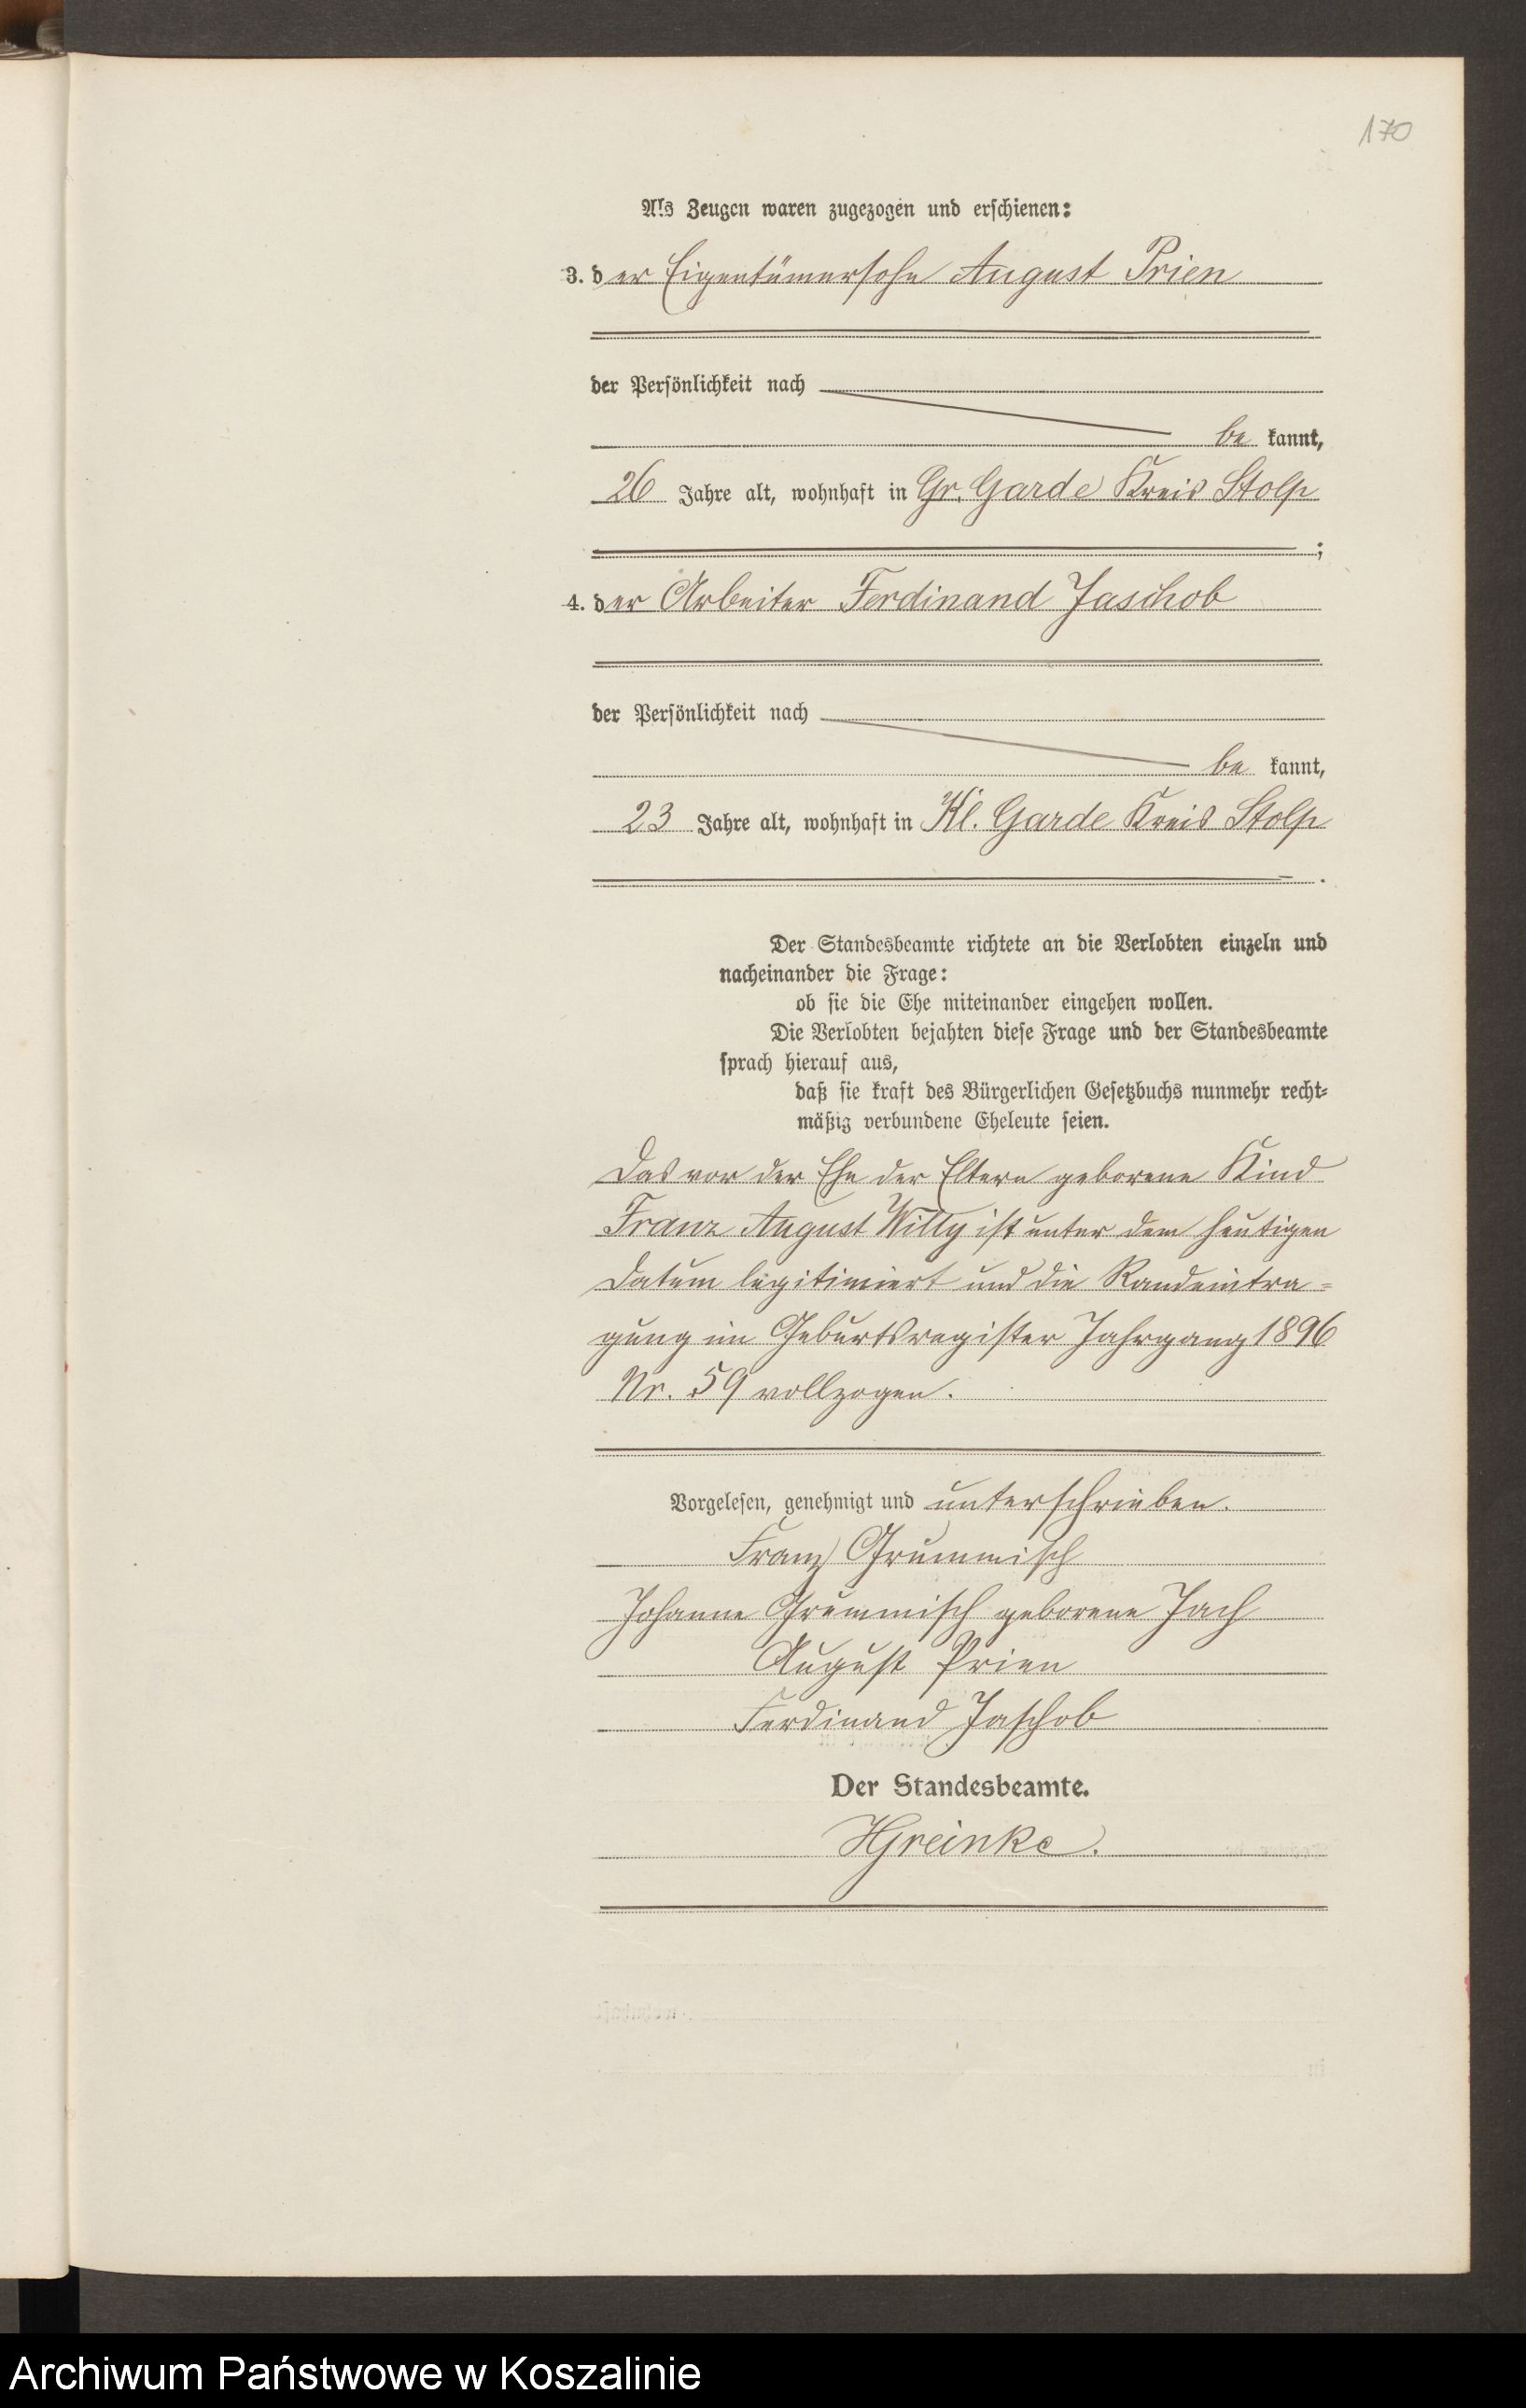 170
Als Zeugen waren zugezogen und erschienen:
3. der Eigentümersohn August Prien
der Persönlichkeit nach
be kannt,
26 Jahre alt, wohnhaft in Gr. Garde Kreis Stolp
;
4. der Arbeiter Ferdinand Jaschob
der Persönlichkeit nach
be kannt,
23 Jahre alt, wohnhaft in Kl. Garde Kreis Stolp
.
Der Standesbeamte richtete an die Verlobten einzeln und
nacheinander die Frage:
ob sie die Ehe miteinander eingehen wollen.
Die Verlobten bejahten diese Frage und der Standesbeamte
sprach hierauf aus,
daß sie kraft des Bürgerlichen Gesetzbuchs nunmehr recht-
mäßig verbundene Eheleute seien.
Das vor der Ehe der Eltern geborene Kind
Franz August Willy ist unter dem heutigen
Datum legitimiert und die Randeintra-
gung im Geburtsregister Jahrgang 1896
Nr. 59 vollzogen.
Vorgelesen, genehmigt und unterschrieben.
Franz Grummisch
Johanne Grummisch geborene Jach
August Prien
Ferdinand Jaschob
Der Standesbeamte.
HGreinke.
Archiwum Państwowe w Koszalinie